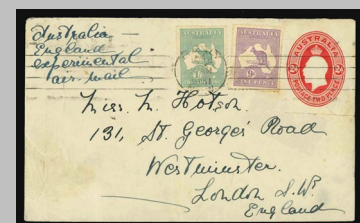 Australia
England
experimental
air mail
AUSTRALIA
AUSTRALIA
AUSTRALIA
POSTAGE TWO PENCE
Miss. M. Hotson.
131, St. George's Road
Westminster.
London S.W.
England